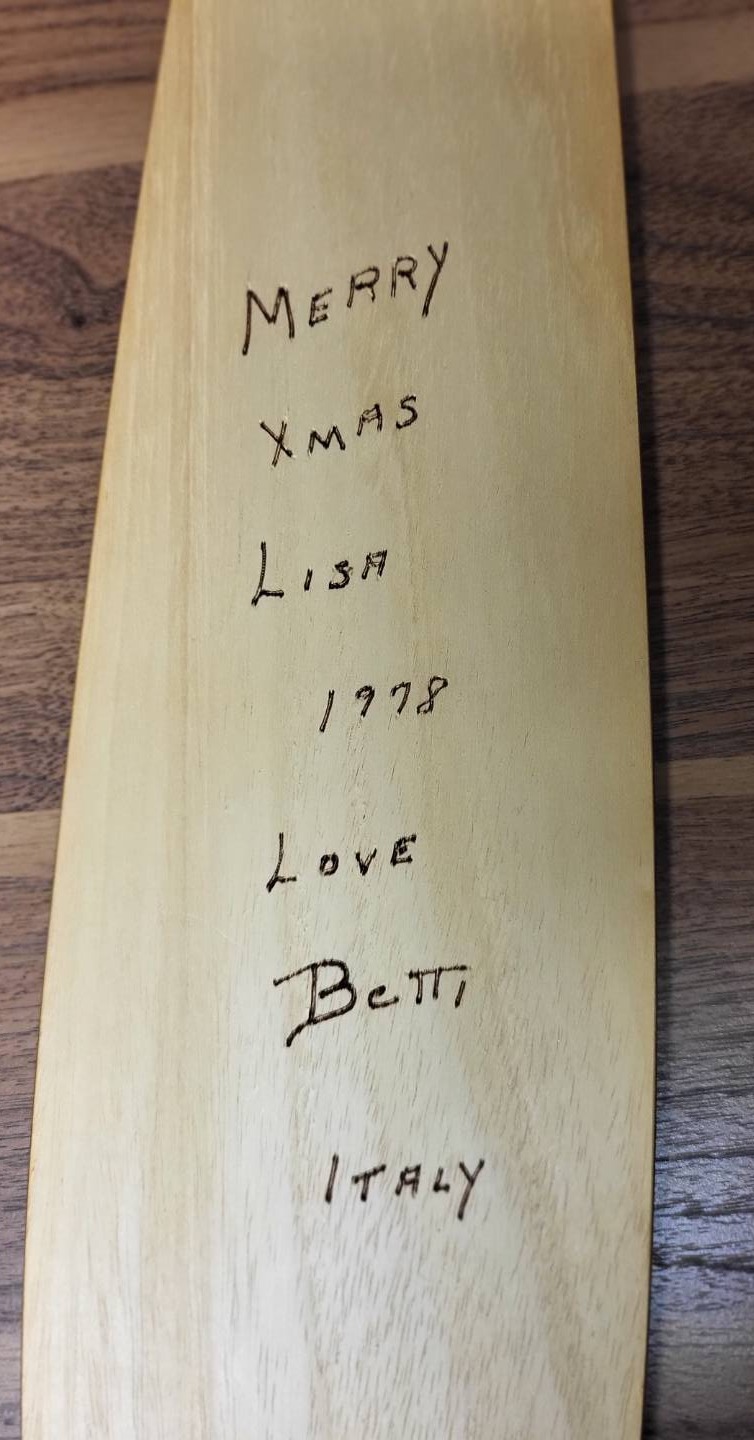 MERRY
XMAS
LISA
1978
LOVE
Betti
ITALY